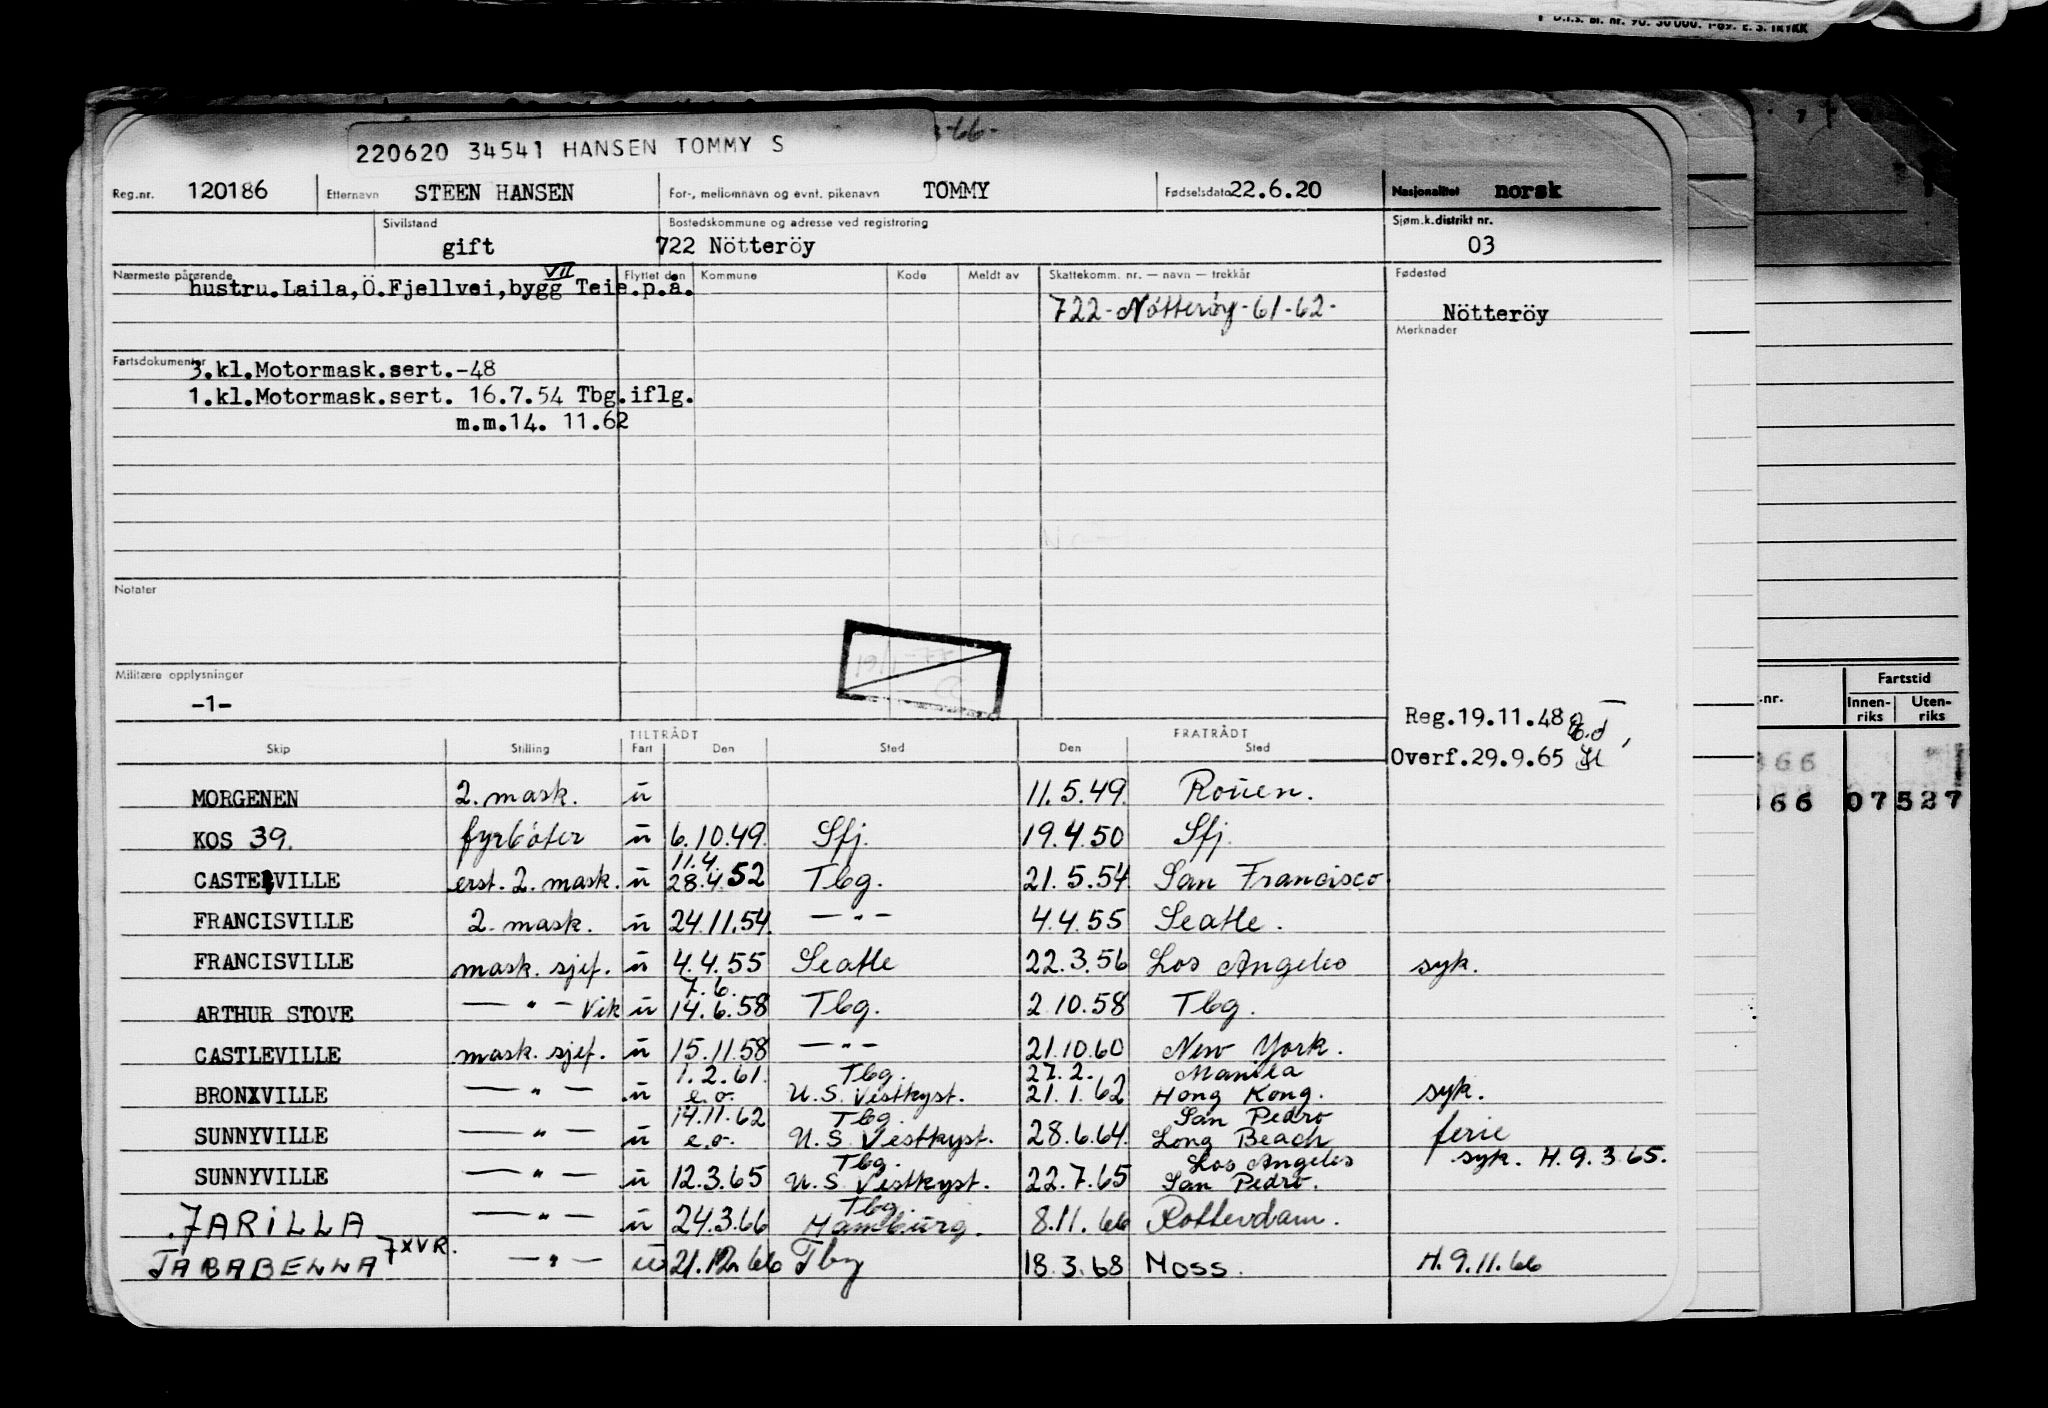 D.I.S. Bl. nr. 90. 50 000. 1-69. E. S. TRYKK
-66-
220620 34541 HANSEN TOMMY S
Reg.nr. 120186 Etternavn STEEN HANSEN For-, mellomnavn og evnt. pikenavn TOMMY Fødselsdato 22.6.20 Nasjonalitet norsk
Sivilstand Bostedskommune og adresse ved registrering Sjøm.k.distrikt nr.
gift 722 Nötteröy 03
Nærmeste pårørende Flyttet den Kommune Kode Meldt av Skattekomm. nr. — navn — trekkår Fødested
VII
hustru.Laila,Ö.Fjellvei,bygg Teie.p.å.
722-Nötteröy-61-62- Nötteröy
Merknader
Fartsdokumenter
3.kl.Motormask.sert.-48
1.kl.Motormask.sert. 16.7.54 Tbg.iflg.
m.m.14. 11.62
Notater
Militære opplysninger
-1-
Reg.19.11.48
Overf.29.9.65
TILTRÅDT FRATRÅDT
Skip Stilling Fart Den Sted Den Sted
MORGENEN 2. mask. u 11.5.49. Rouen.
KOS 39. fyrböter u 6.10.49. Sfj. 19.4.50 Sfj.
11.4.
CASTELVILLE erst. 2. mask. u 28.4.52 Tbg. 21.5.54 San Francisco
FRANCISVILLE 2. mask. u 24.11.54. — " — 4.4.55 Seatle.
FRANCISVILLE mask. sjef. u 4.4.55 Seatle 22.3.56 Los Angeles syk.
7.6.
ARTHUR STOVE — " — Vik u 14.6.58 Tbg. 2.10.58 Tbg.
CASTLEVILLE mask. sjef. u 15.11.58 — " — 21.10.60 New York.
1.2.61. Tbg. 27.2. Manila
BRONXVILLE — " — u e.o. U.S. Vestkyst. 21.1.62 Hong Kong. syk.
14.11.62 Tbg. San Pedro
SUNNYVILLE — " — u e.o. U.S. Vestkyst. 28.6.64. Long Beach ferie
Tbg. Los Angeles syk. H.9.3.65.
SUNNYVILLE — " — u 12.3.65 U.S. Vestkyst. 22.7.65 San Pedro.
Tbg.
JARILLA — " — u 24.3.66 Hamburg. 8.11.66 Rotterdam.
7XVR.
TABABELLA — " — u 21.12.66 Tbg 18.3.68 Moss. H.9.11.66
.nr. Fartstid
Innen-riks Uten-riks
366
366 07527